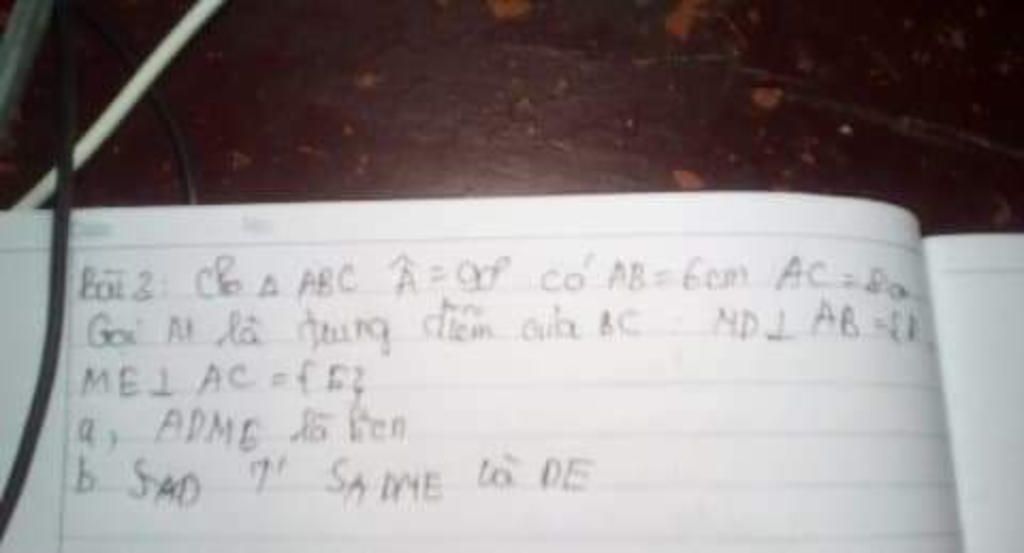 Bài 2: Cho △ ABC Â = 90° có AB = 6cm AC = 8c
Gọi M là trung điểm của BC. MD ⊥ AB = {D
ME ⊥ AC = {E}
a, ADME là hcn
b SAD ?' SADME và DE